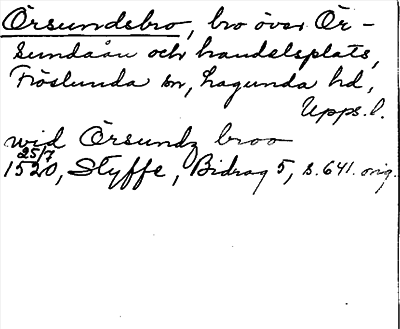 Örsundsbro, bro över Ör-
sundaån och handelsplats,
Fröslunda sn, Lagunda hd,
Upps. l.
wid Örsundz broo
25/7
1520, Styffe, Bidrag 5, s. 641. orig.